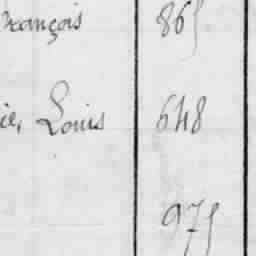 François 865
ie, Louis 648
975